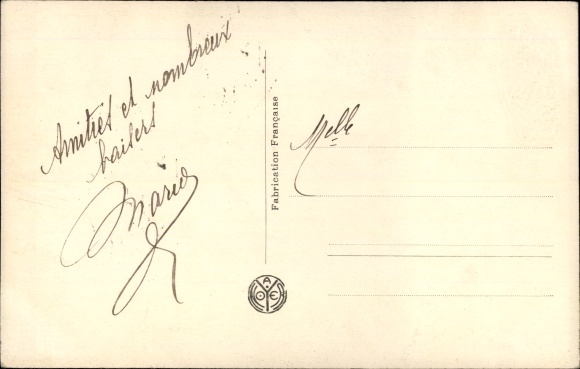 Amitiés et nombreux
baisers
Maria
Fabrication Française
Melle